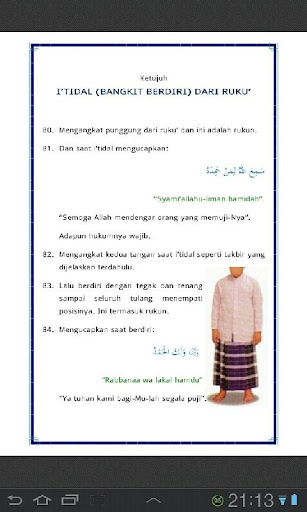 Ketujuh
I'TIDAL (BANGKIT BERDIRI) DARI RUKU'
80. Mengangkat punggung dari ruku' dan ini adalah rukun.
81. Dan saat i'tidal mengucapkan:
سَمِعَ اللهُ لِمَنْ حَمِدَهُ
"Syami'allahu-liman hamidah".
"Semoga Allah mendengar orang yang memuji-Nya".
Adapun hukumnya wajib.
82. Mengangkat kedua tangan saat i'tidal seperti takbir yang
dijelaskan terdahulu.
83. Lalu berdiri dengan tegak dan tenang
sampai seluruh tulang menempati
posisinya. Ini termasuk rukun.
84. Mengucapkan saat berdiri:
رَبَّنَا وَلَكَ الْحَمْدُ
"Rabbanaa wa lakal hamdu"
"Ya tuhan kami bagi-Mu-lah segala puji".
36
21:13